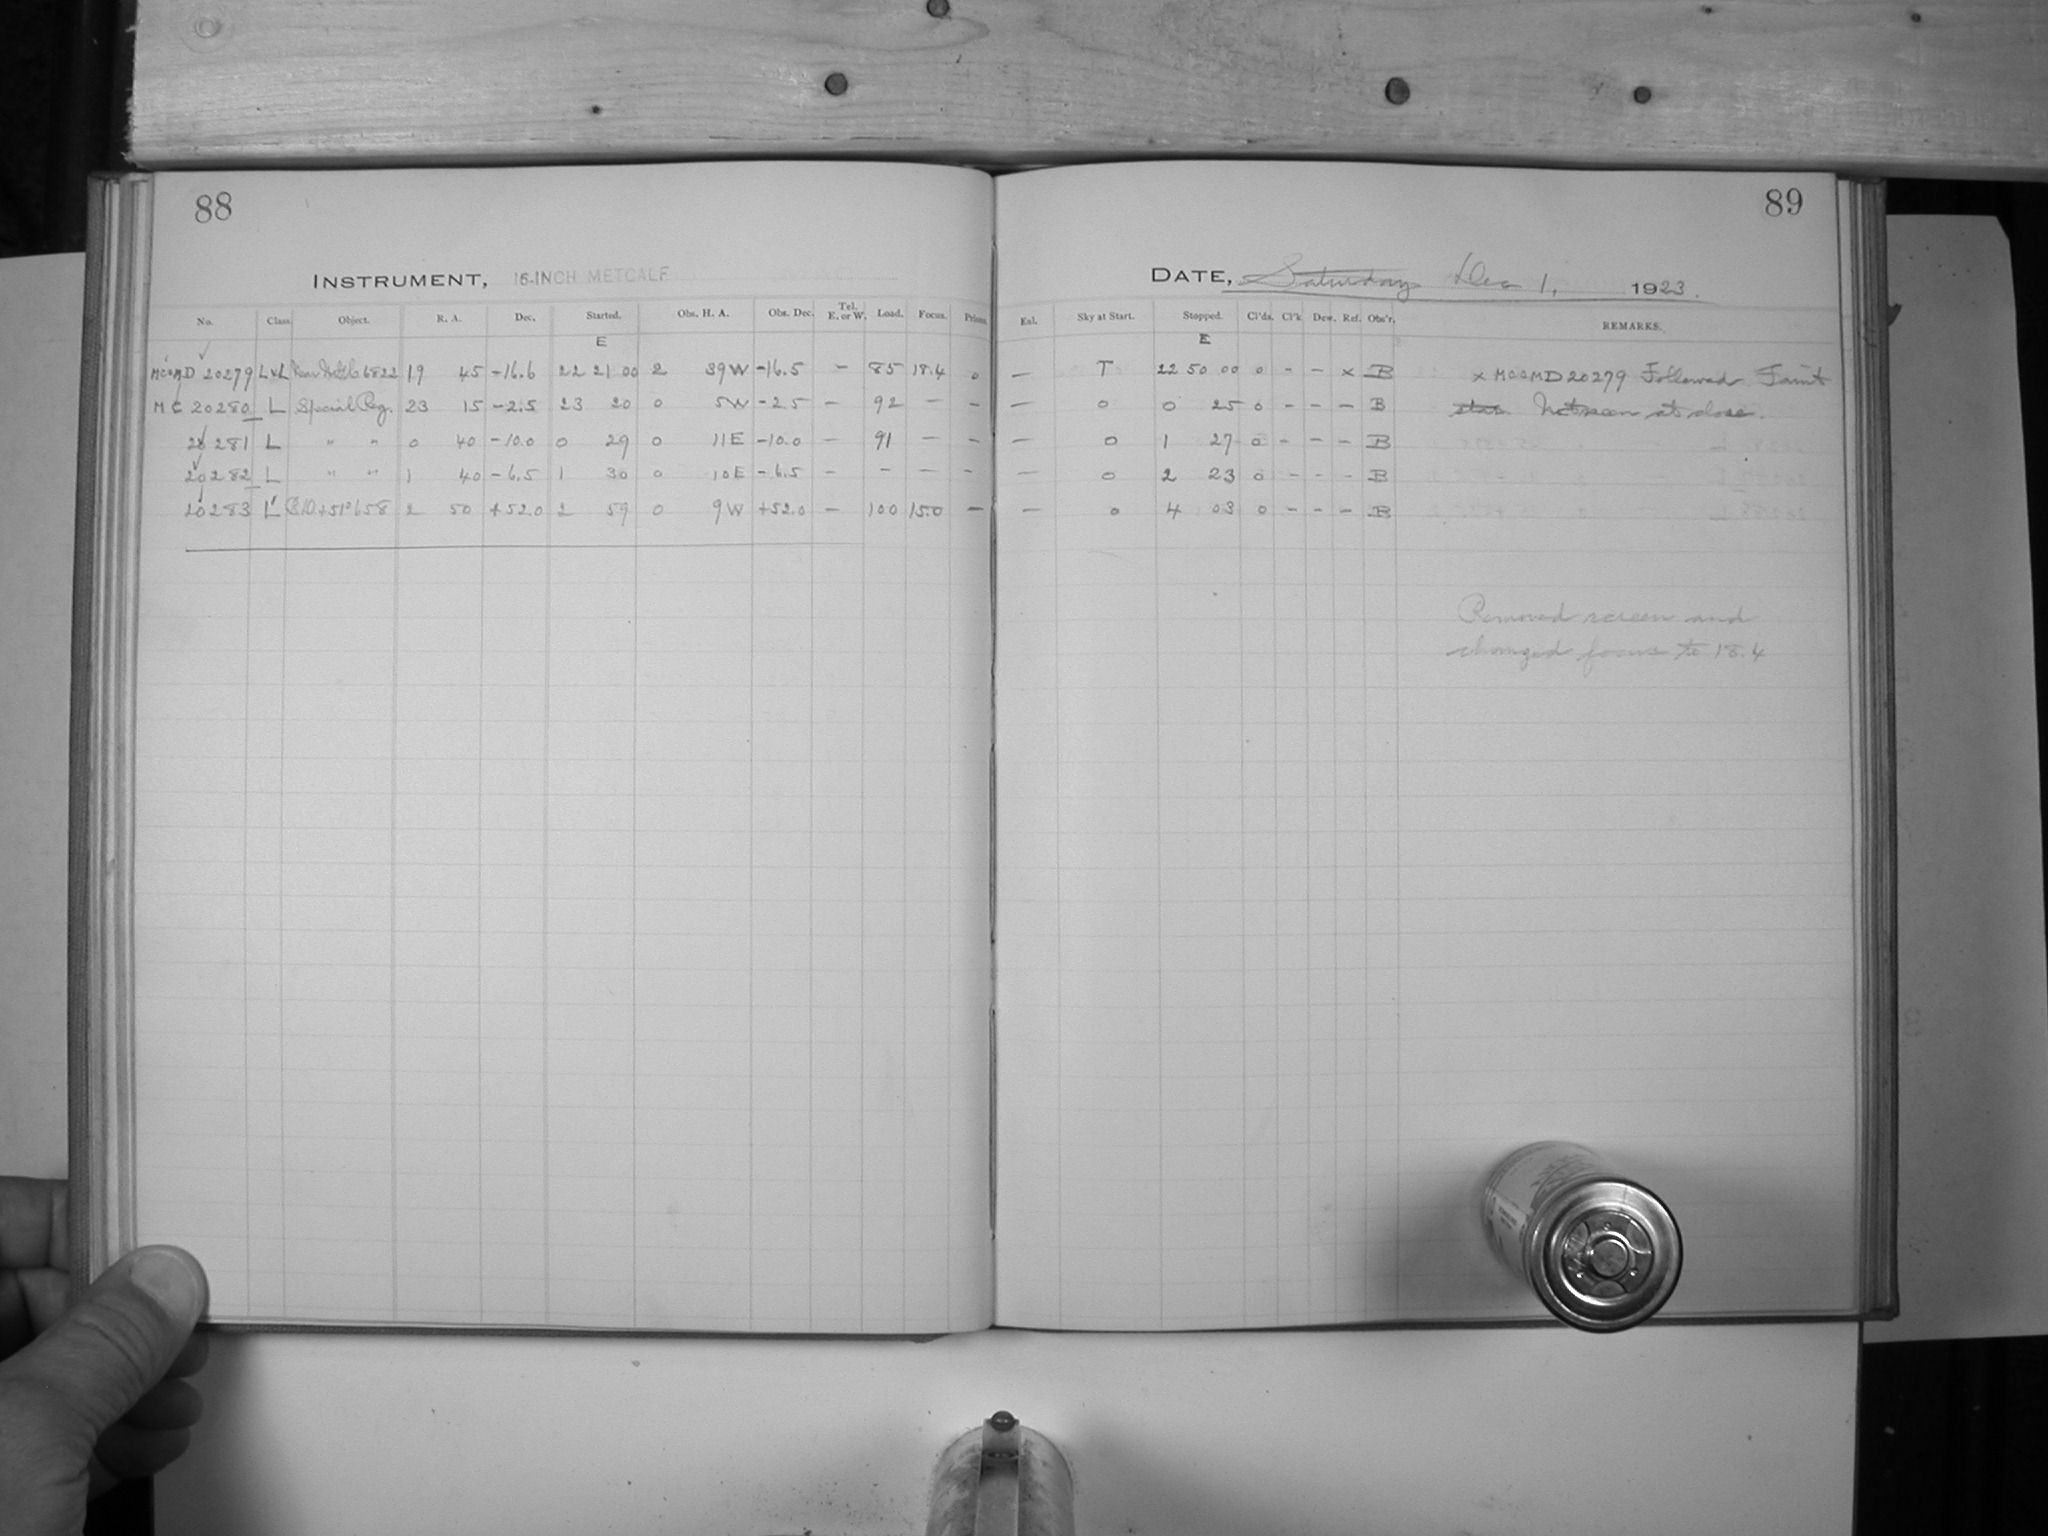 88
INSTRUMENT, 16-INCH METCALF
No. Class. Object. R. A. Dec. Started. Obs. H. A. Obs. Dec. Tel. E. or W. Load. Focus. Prism.
E
20279 19 45 -16.6 22 21 00 2 39 W -16.5 - 85 18.4 0
MC 20280 L Special Reg. 23 15 -2.5 23 20 0 5 W -2.5 - 92 - -
20281 L " " 0 40 -10.0 0 29 0 11 E -10.0 - 91 - -
20282 L " " 1 40 -6.5 1 30 0 10 E -6.5 - - - -
20283 L' +51° 658 2 50 +52.0 2 59 0 9 W +52.0 - 100 15.0 -
89
DATE, Saturday Dec 1, 1923.
Enl. Sky at Start. Stopped. Cl'ds. Cl'k Dew. Ref. Obs'r. REMARKS.
E
— T 22 50 00 0 - - x B x 20279 Followed Faint
— 0 0 25 0 - - - B star. Not seen at close.
— 0 1 27 0 - - - B
— 0 2 23 0 - - - B
— 0 4 03 0 - - - B
Removed screen and
changed focus to 18.4